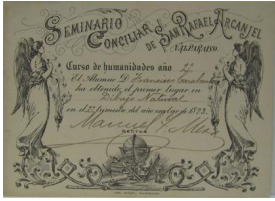 SEMINARIO
CONCILIAR DE SAN RAFAEL ARCANJEL
VALPARAISO.
Curso de humanidades año
El Alumno D. Francisco
ha obtenido el primer lugar en
Dibujo Natural
en el 2º semestre del año escolar de 1893.
Manuel
RECTOR